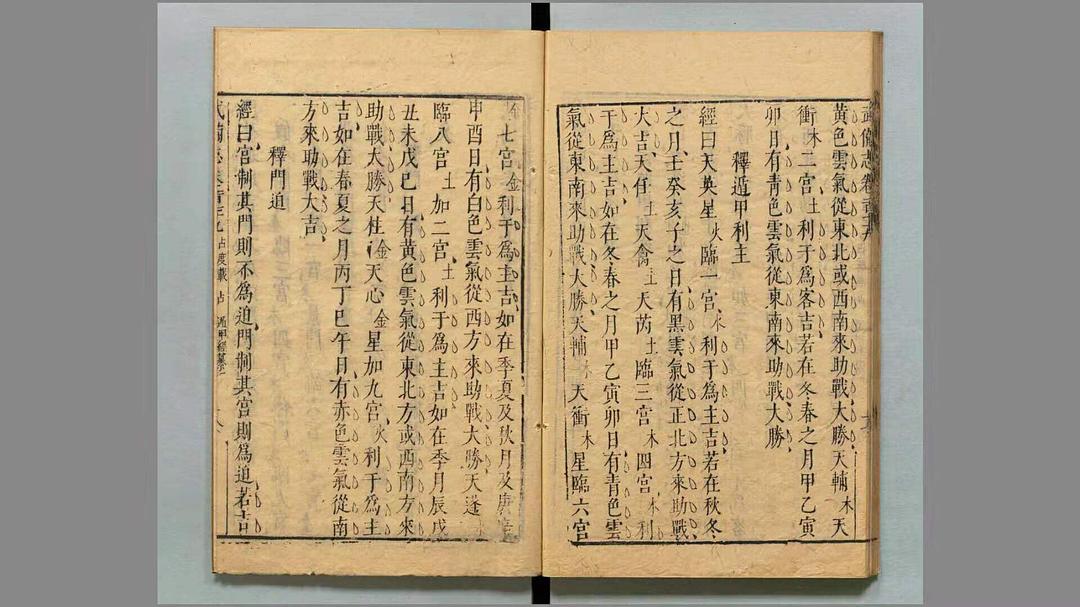 黃色雲氣從東北或西南來助戰大勝天輔木天
衝木二宮土利于爲客吉若在冬春之月甲乙寅
卯日有青色雲氣從東南來助戰大勝
釋遁甲利主
經曰天英星火臨一宮水利于爲主吉若在秋冬
之月壬癸亥子之日有黑雲氣從正北方來助戰
大吉天任土天禽土天芮土臨三宮木四宮木利
于爲主吉如在冬春之月甲乙寅卯日有青色雲
氣從東南來助戰大勝天輔木天衝木星臨六宮
金七宮金利于爲主吉如在季夏及秋月及庚辛
申酉日有白色雲氣從西方來助戰大勝天蓬水
臨八宮土加二宮土利于爲主吉如在季月辰戌
丑未戊巳日有黃色雲氣從東北方或西南方來
助戰大勝天柱金天心金星加九宮火利于爲主
吉如在春夏之月丙丁巳午日有赤色雲氣從南
方來助戰大吉
釋門迫
經曰宮制其門則不爲迫門制其宮則爲迫若吉
武備志卷 占度載 占 遁甲經纂